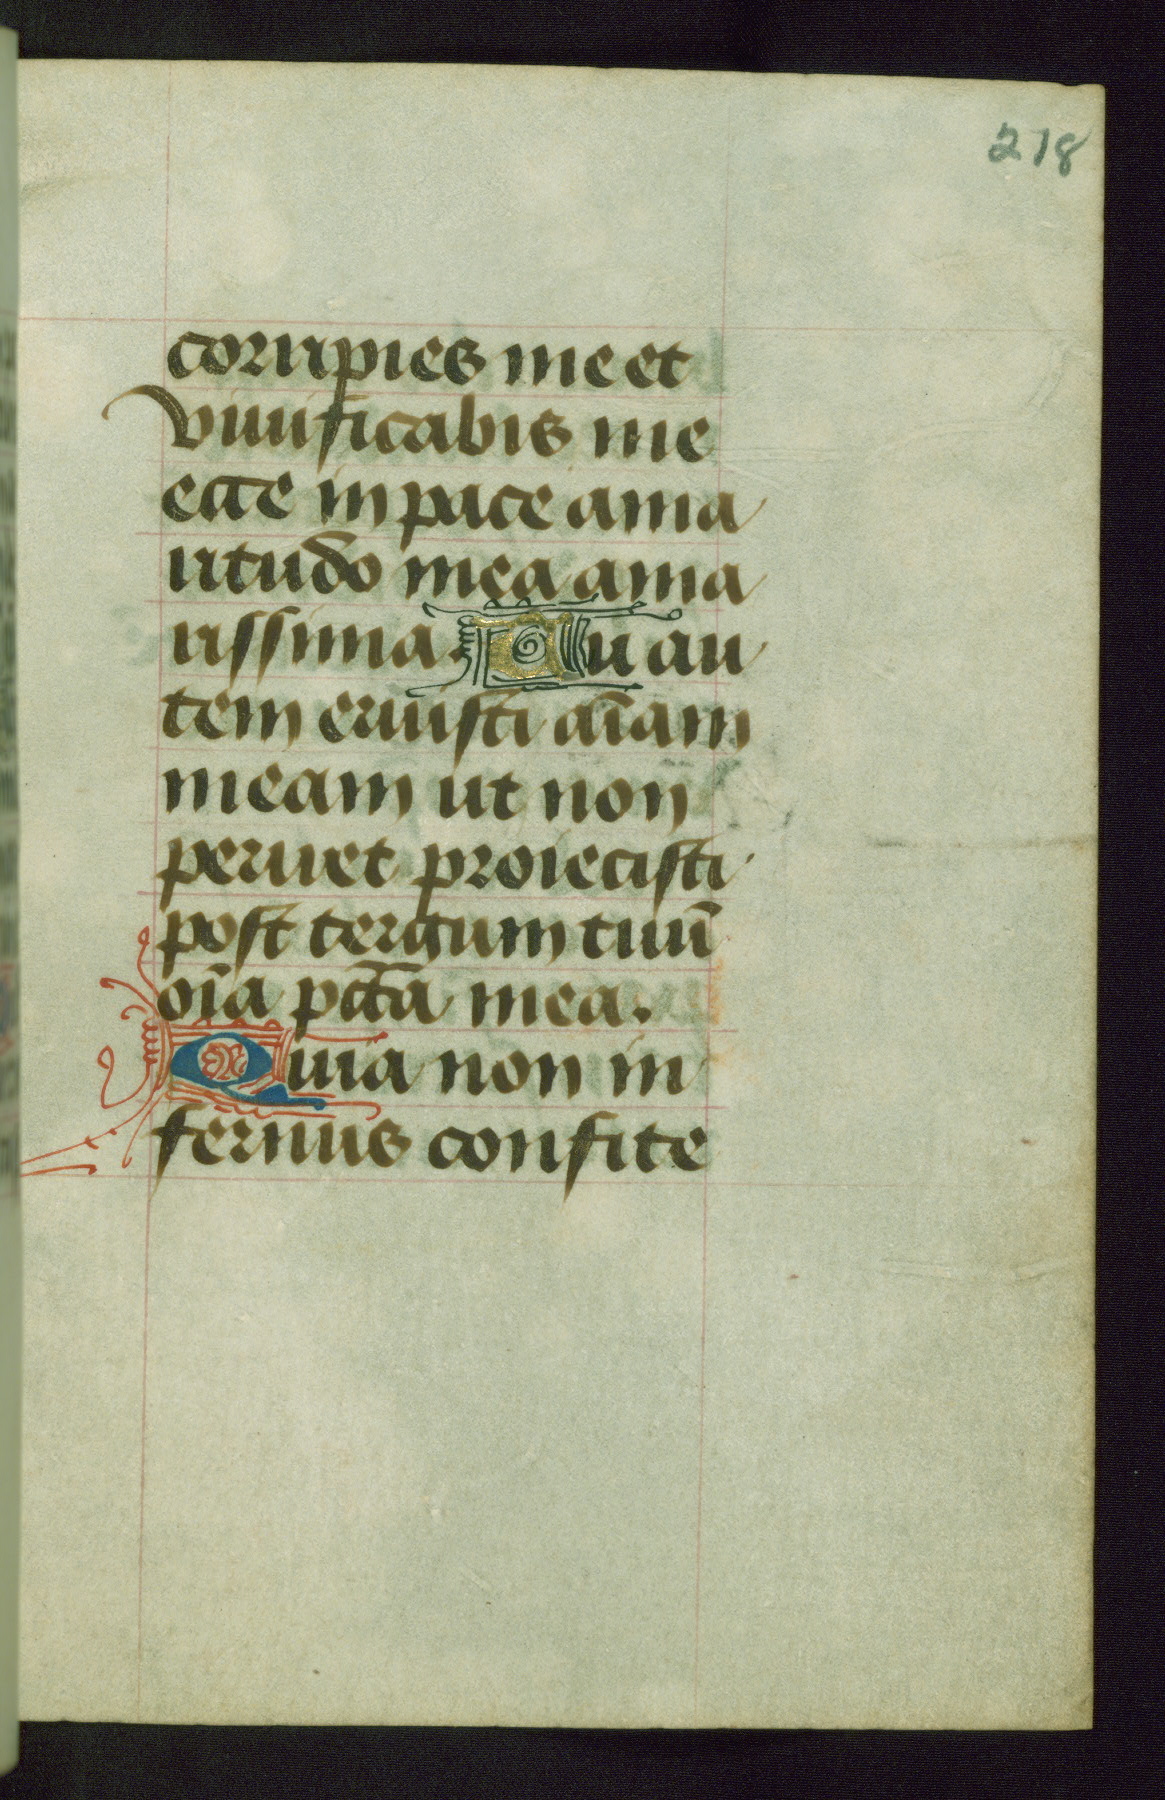 218
corripies me et
viuificabis me
ecce in pace ama
ritudo mea ama
rissima. Tu au
tem eruisti aīam
meam ut non
periret proiecisti
post tergum tuū
oīa pctā mea.
Quia non in
fernus confite